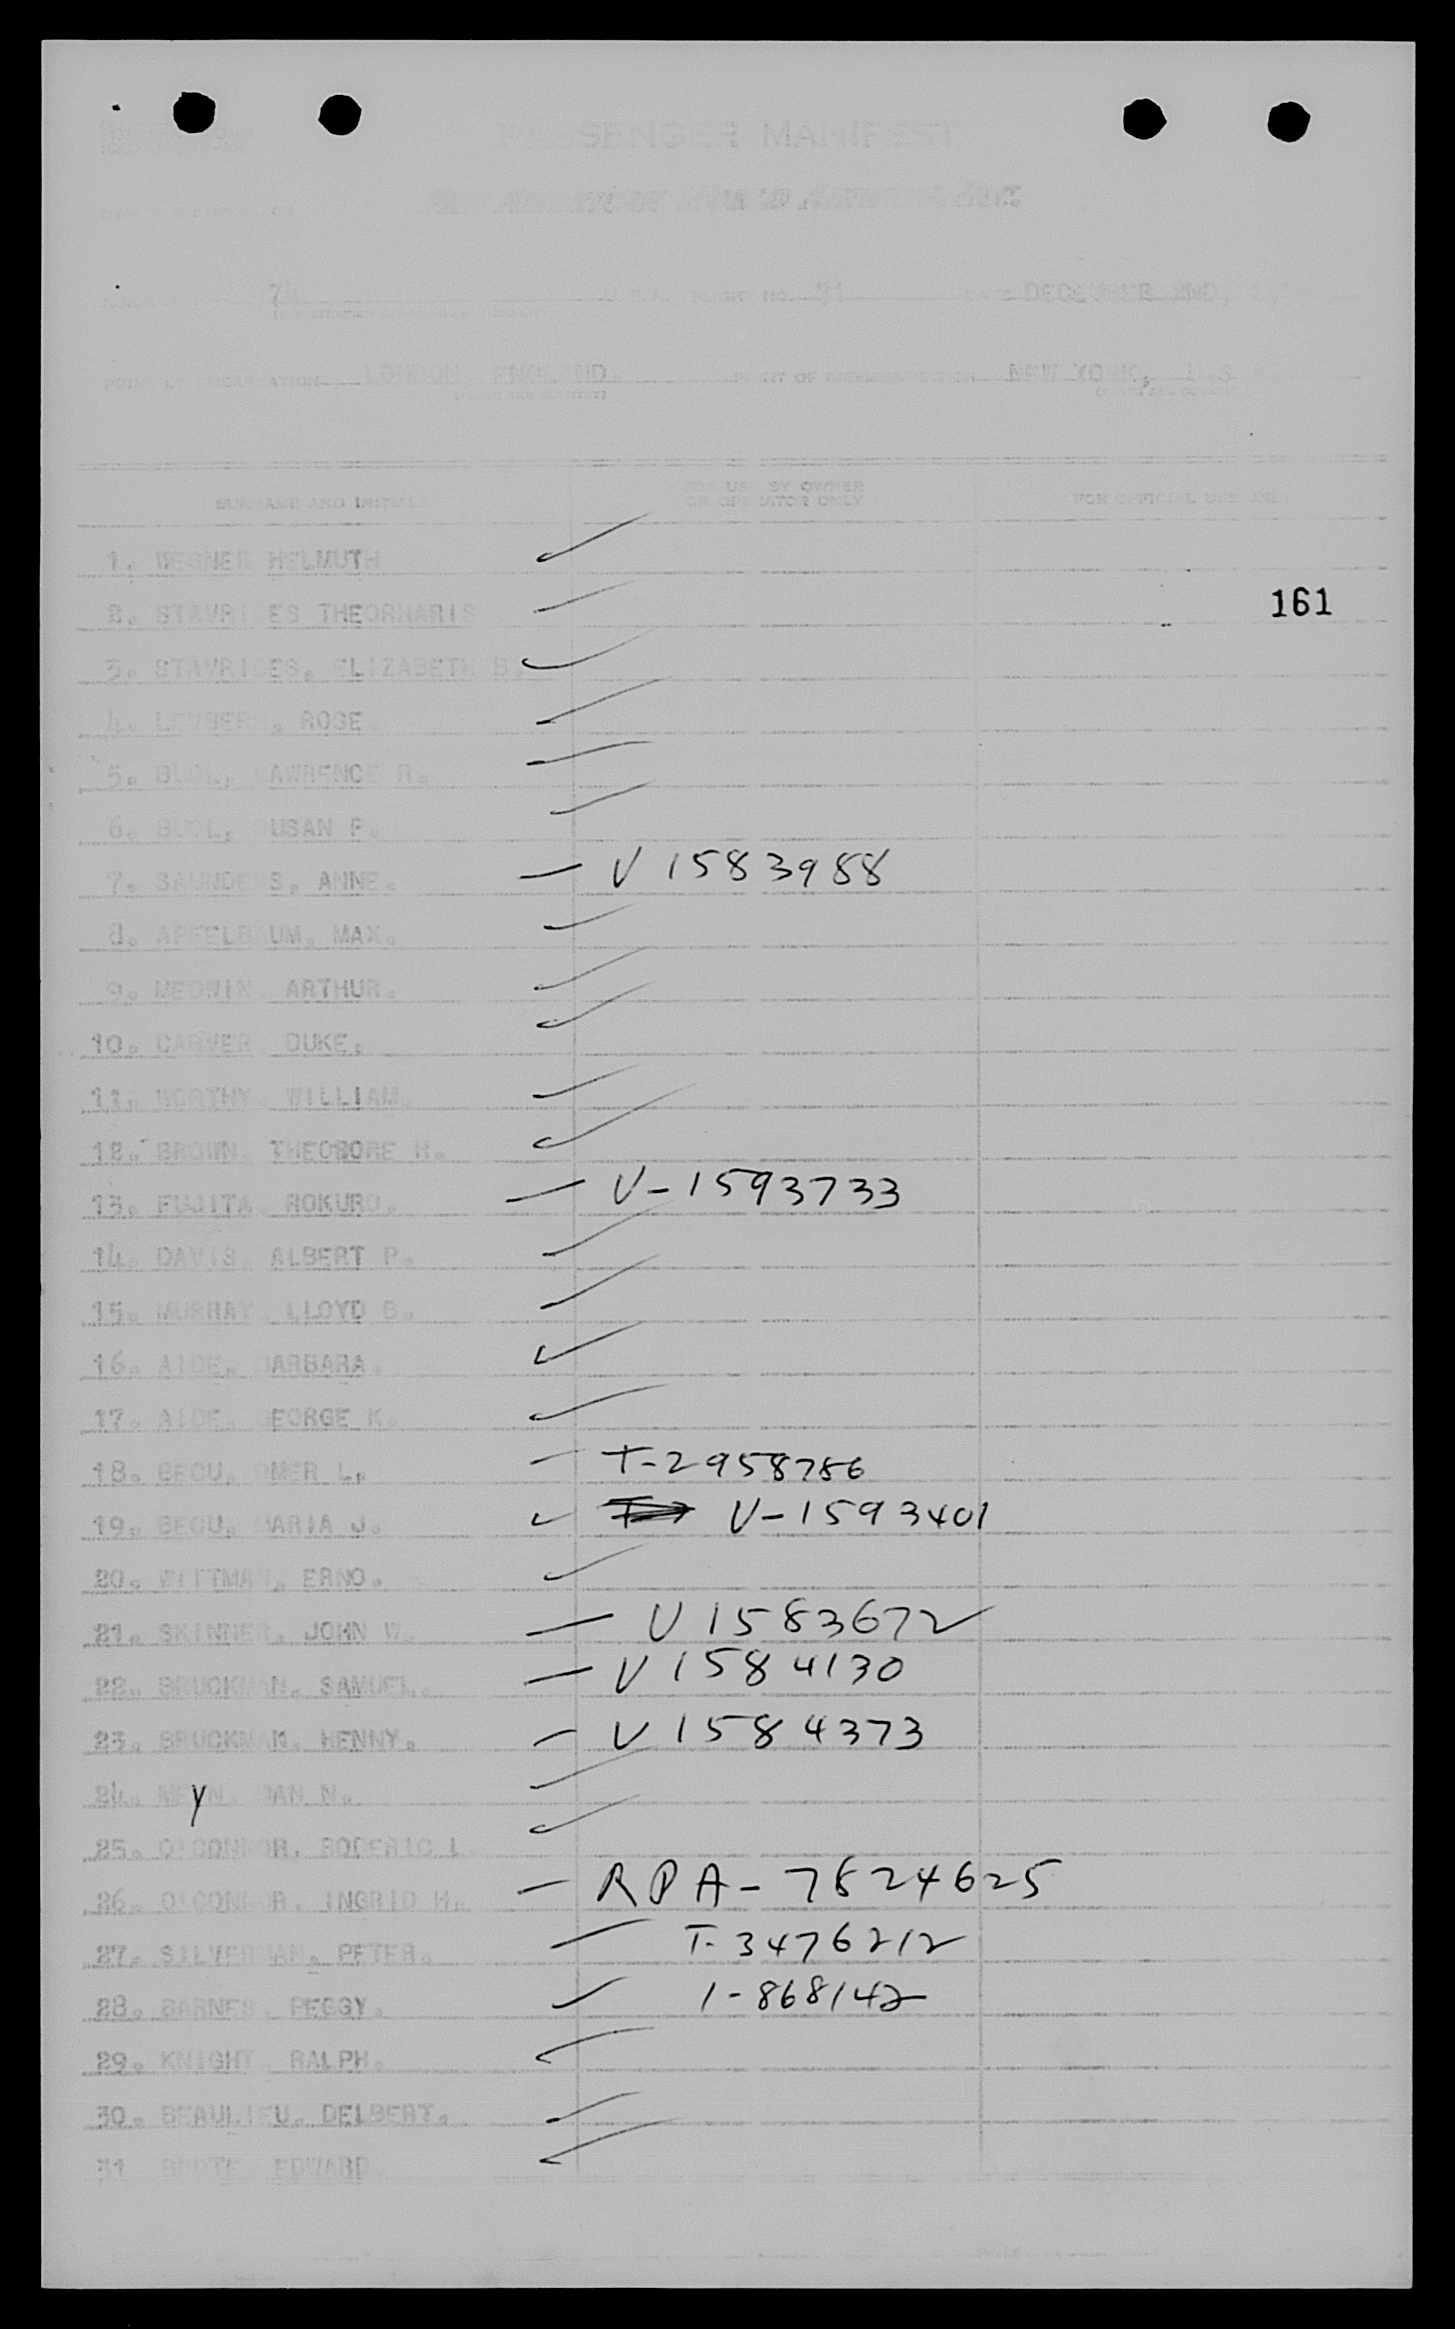 PASSENGER MANIFEST
FLIGHT NO. 
DECEMBER 2ND,
LONDON, ENGLAND. NEW YORK, U.S.
SURNAME AND INITIALS FOR USE BY OWNER OR OPERATOR ONLY FOR OFFICIAL USE ONLY
1. WEGNER HELMUTH
161
2. STAVRIDES THEORHARIS
3. STAVRIDES, ELIZABETH B.
4. ROSE.
5. BUOL, LAWRENCE R.
6. BUOL, SUSAN P.
7. SAUNDERS, ANNE. V 1583988
8. APFELBAUM, MAX.
9. MEDWIN, ARTHUR.
10. CARVER, DUKE.
11. WORTHY, WILLIAM.
12. BROWN, THEODORE H.
13. FUJITA, ROKURO. V-1593733
14. DAVIS, ALBERT P.
15. MURRAY, LLOYD B.
16. AIDE, BARBARA.
17. AIDE, GEORGE K.
18. BEGU, OMER L. T-2958786
19. BEGU, MARIA J. V-1593401
20. WITTMAN, ERNO.
21. SKINNER, JOHN W. V 1583672
22. BRUCKMAN, SAMUEL. V 1584130
23. BRUCKMAN, HENNY. V 1584373
24. DAN N.
y
25. O'CONNOR, RODERIC L.
26. O'CONNOR, INGRID H. RPA-7824625
27. SILVERMAN, PETER. T-3476212
28. BARNES, PEGGY. 1-868142
29. KNIGHT, RALPH.
30. BEAULIEU, DELBERT.
31 EDWARD.